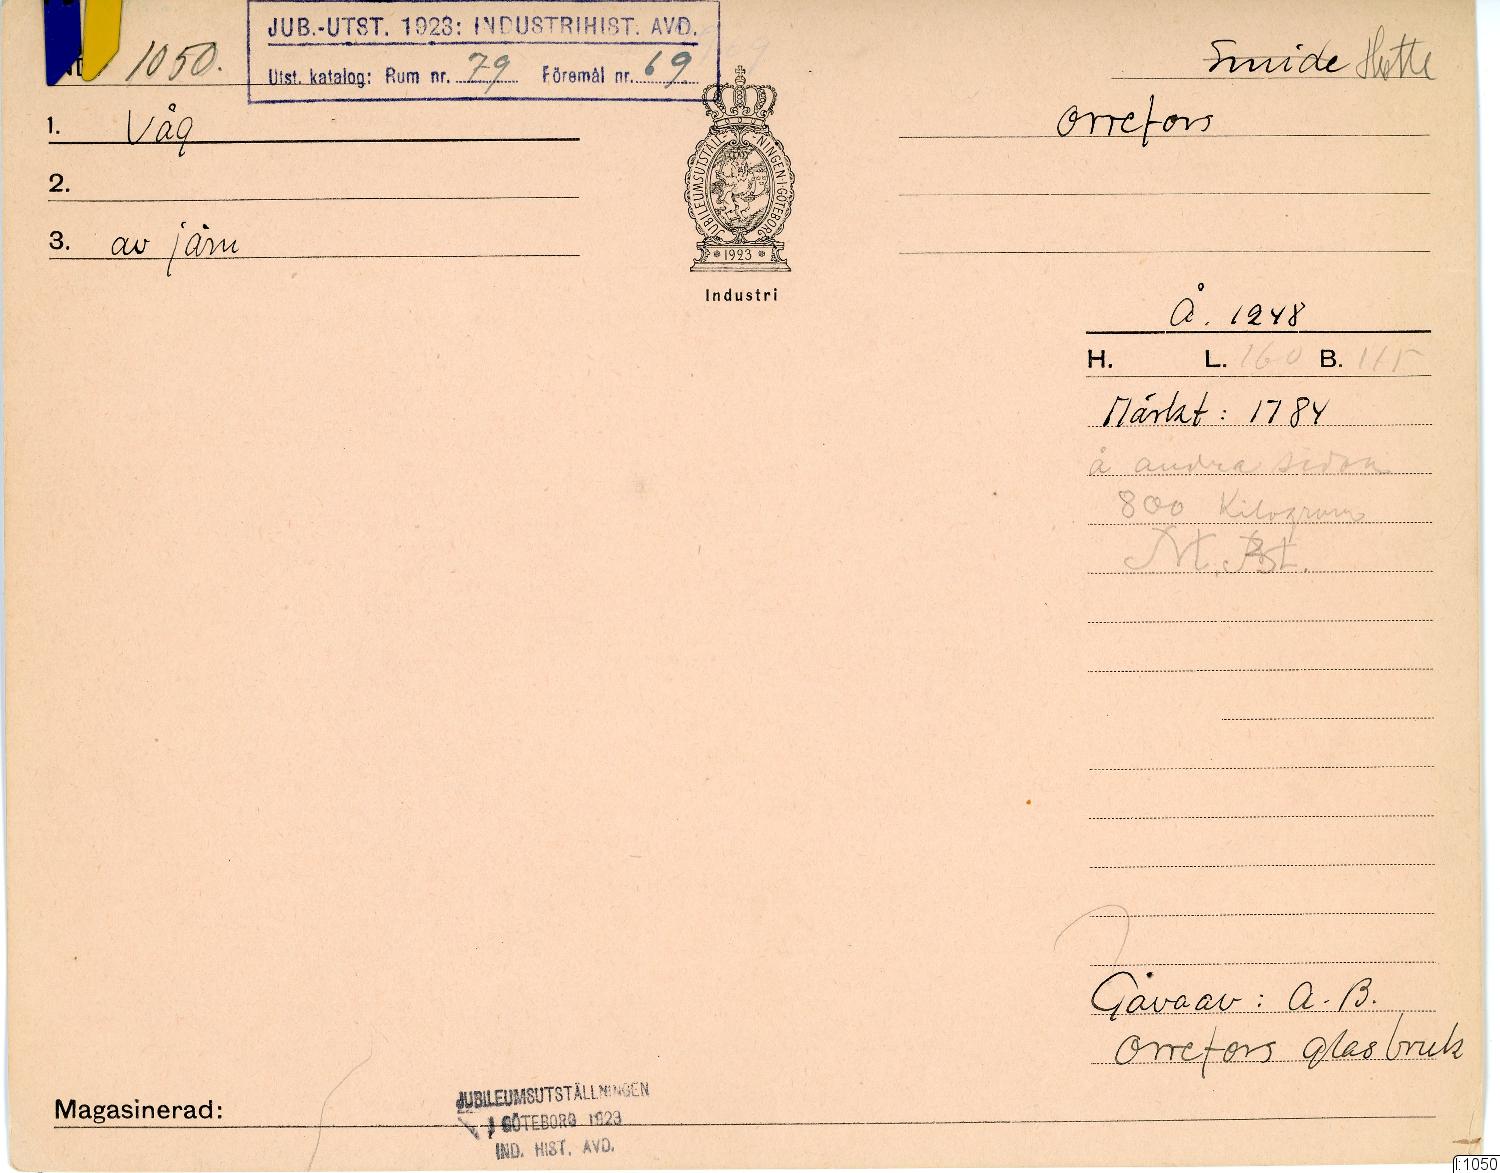 JUB.-UTST. 1923: INDUSTRIHIST. AVD.
Utst. katalog: Rum nr. 79 Föremål nr. 69
1050.
Smide Hytte
1. Våg
Orrefors
2.
3. av järn
JUBILEUMSUTSTÄLLNINGEN I GÖTEBORG
1923
Industri
Å. 1248
H. L. 160 B. 115
Märkt: 1784
å andra sidan
800 Kilogram
Gåva av: A.-B.
Orrefors glasbruk
Magasinerad:
JUBILEUMSUTSTÄLLNINGEN
I GÖTEBORG 1923
IND. HIST. AVD.
I:1050